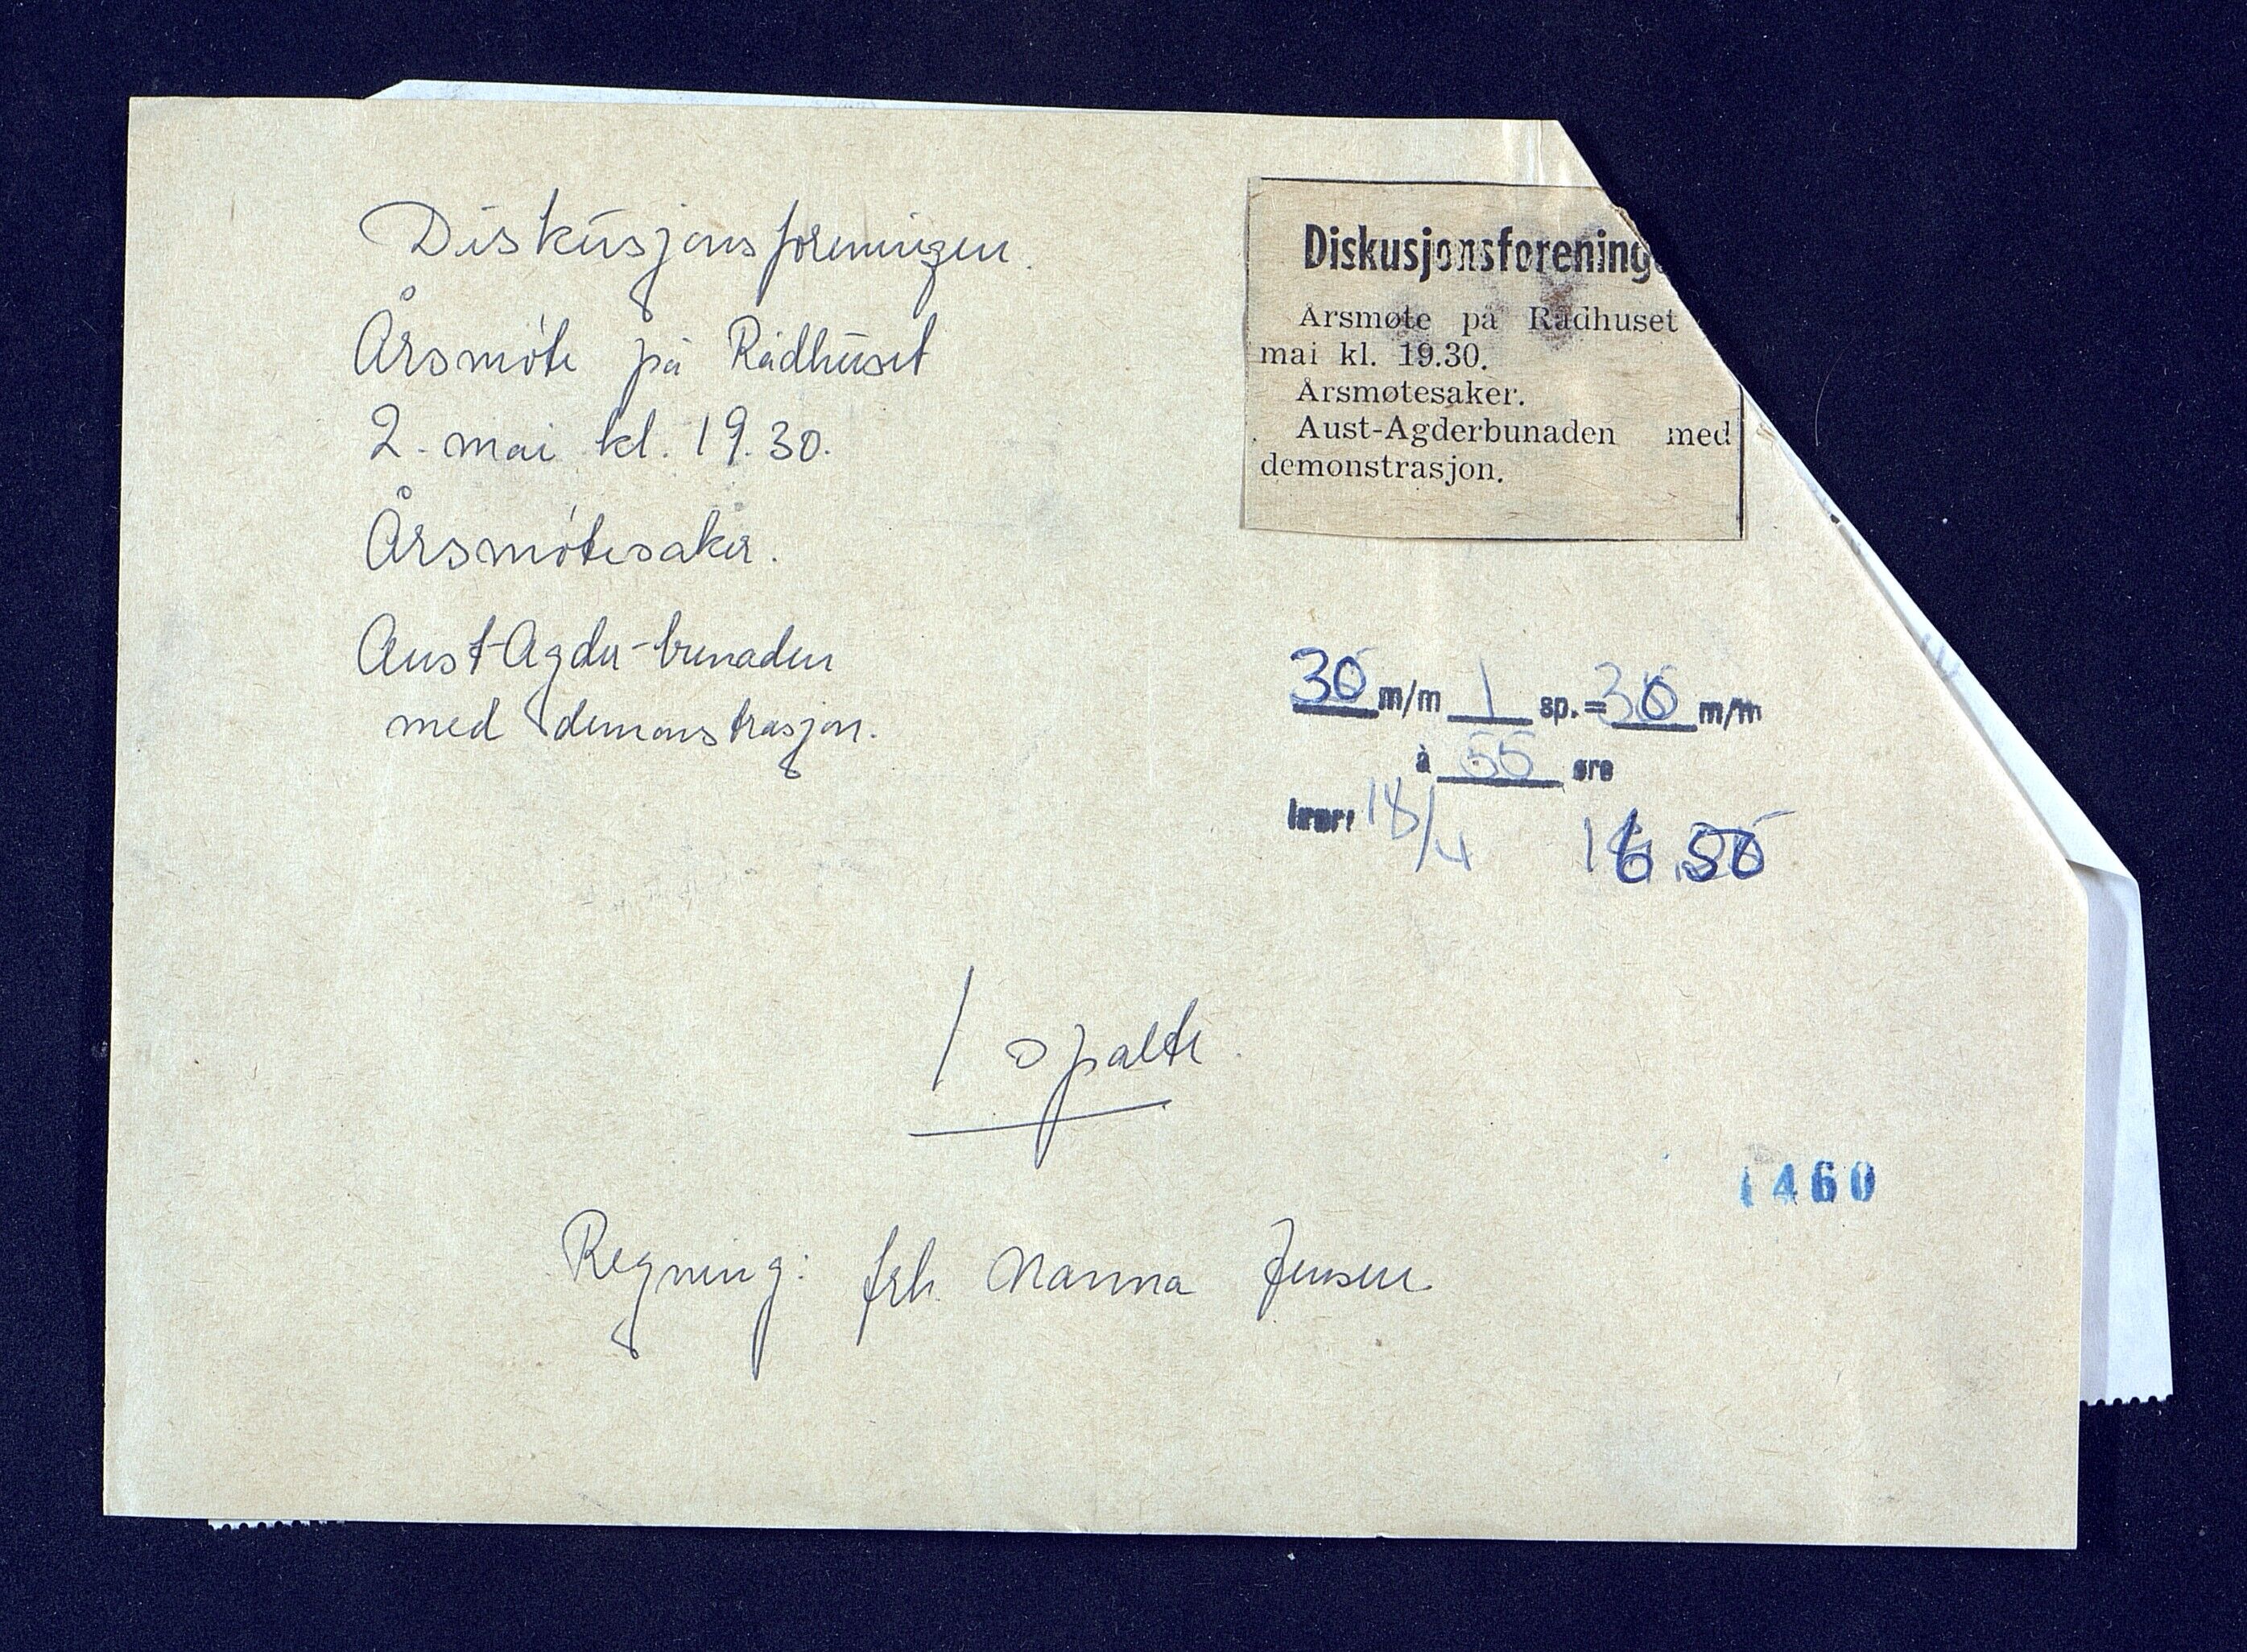 Diskusjonsforeningen.
Årsmøte på Rådhuset
2. mai kl. 19.30.
Årsmøtesaker.
Aust-Agder-bunaden
med demonstrasjon.
Diskusjonsforening
Årsmøte på Rådhuset
mai kl. 19.30.
Årsmøtesaker.
Aust-Agderbunaden med
demonstrasjon.
30 m/m 1 sp. = 30 m/m
à 55 øre
18/4 16.50
1 spalte.
1460
Regning: frk. Nanna Jensen.